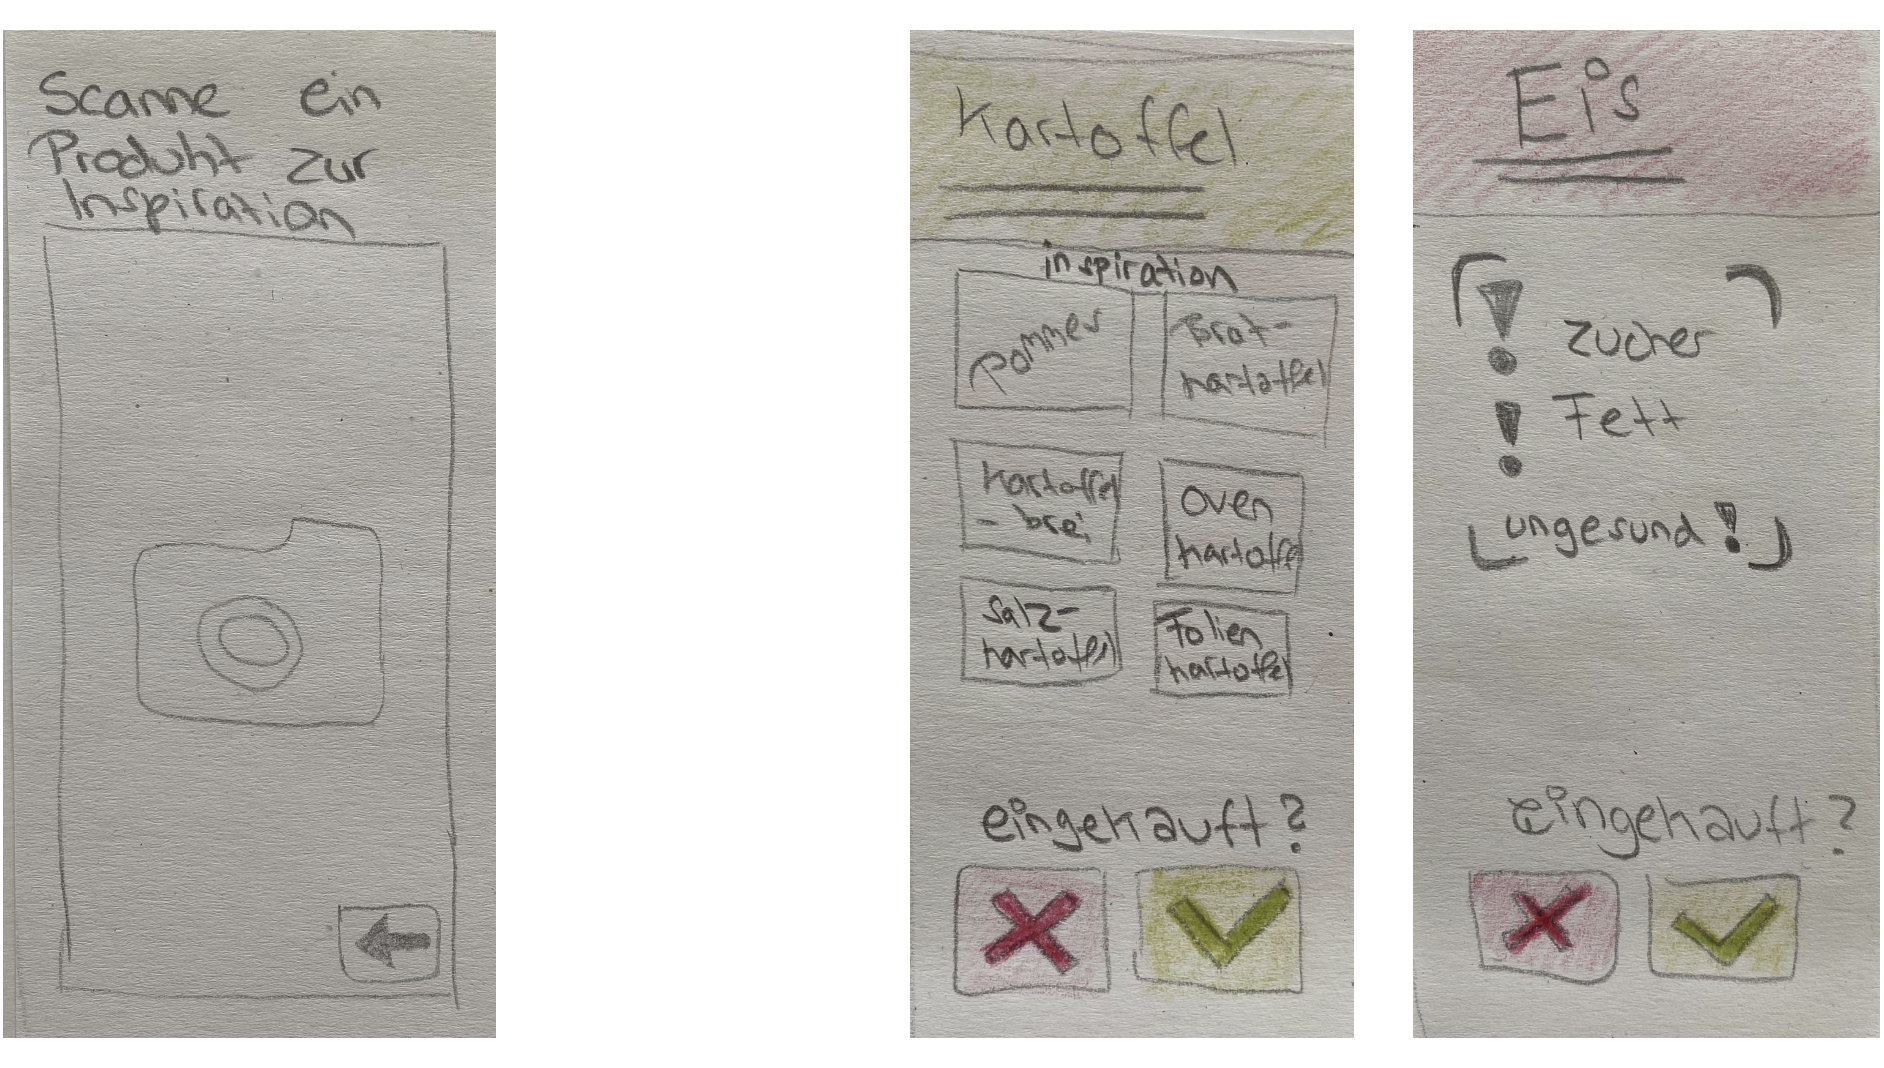 Scanne ein
Produkt zur
Inspiration
Kartoffel
inspiration
Pommes
Brat-
kartoffel
Kartoffel
- brei
Oven
kartoffel
Salz-
kartoffel
Folien
kartoffel
eingekauft?
Eis
! Zucker
! Fett
ungesund!
eingekauft?